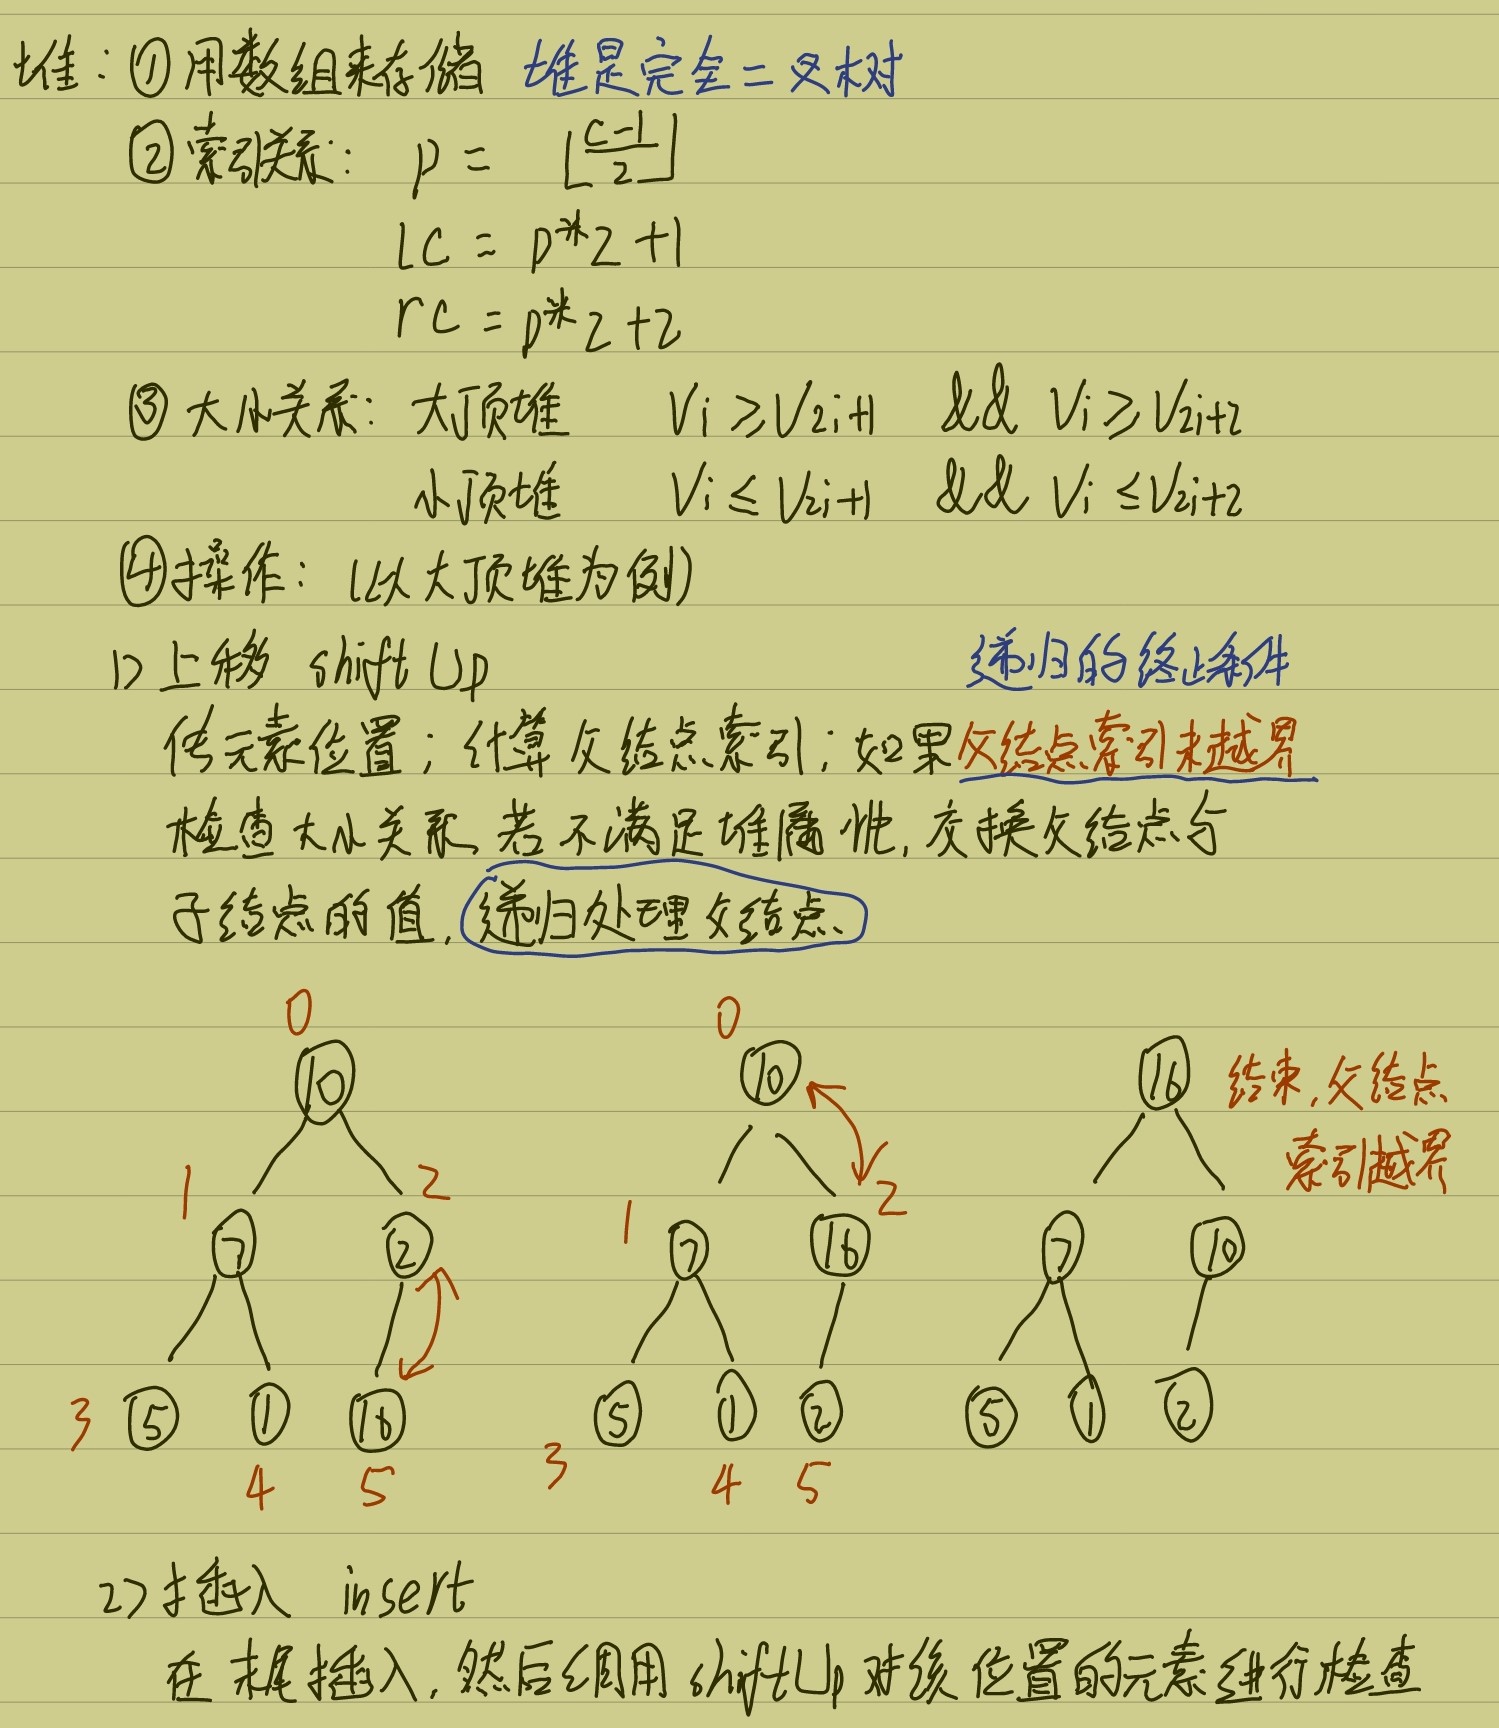 堆：①用数组来存储 堆是完全二叉树
②索引关系： p = ⌊(c-1)/2⌋
lc = p*2+1
rc = p*2+2
③大小关系：大顶堆 Vi ≥ V2i+1 && Vi ≥ V2i+2
小顶堆 Vi ≤ V2i+1 && Vi ≤ V2i+2
④操作：(以大顶堆为例)
1> 上移 shiftUp 递归的终止条件
传元素位置；计算父结点索引；如果父结点索引未越界
检查大小关系，若不满足堆属性，交换父结点与
子结点的值，递归处理父结点
0 0
10 10 16 结束，父结点
索引越界
1 2 1 2
7 2 7 16 7 10
3 5 1 16 5 1 2 5 1 2
4 5 3 4 5
2> 插入 insert
在末尾插入，然后调用shiftUp对该位置的元素进行检查